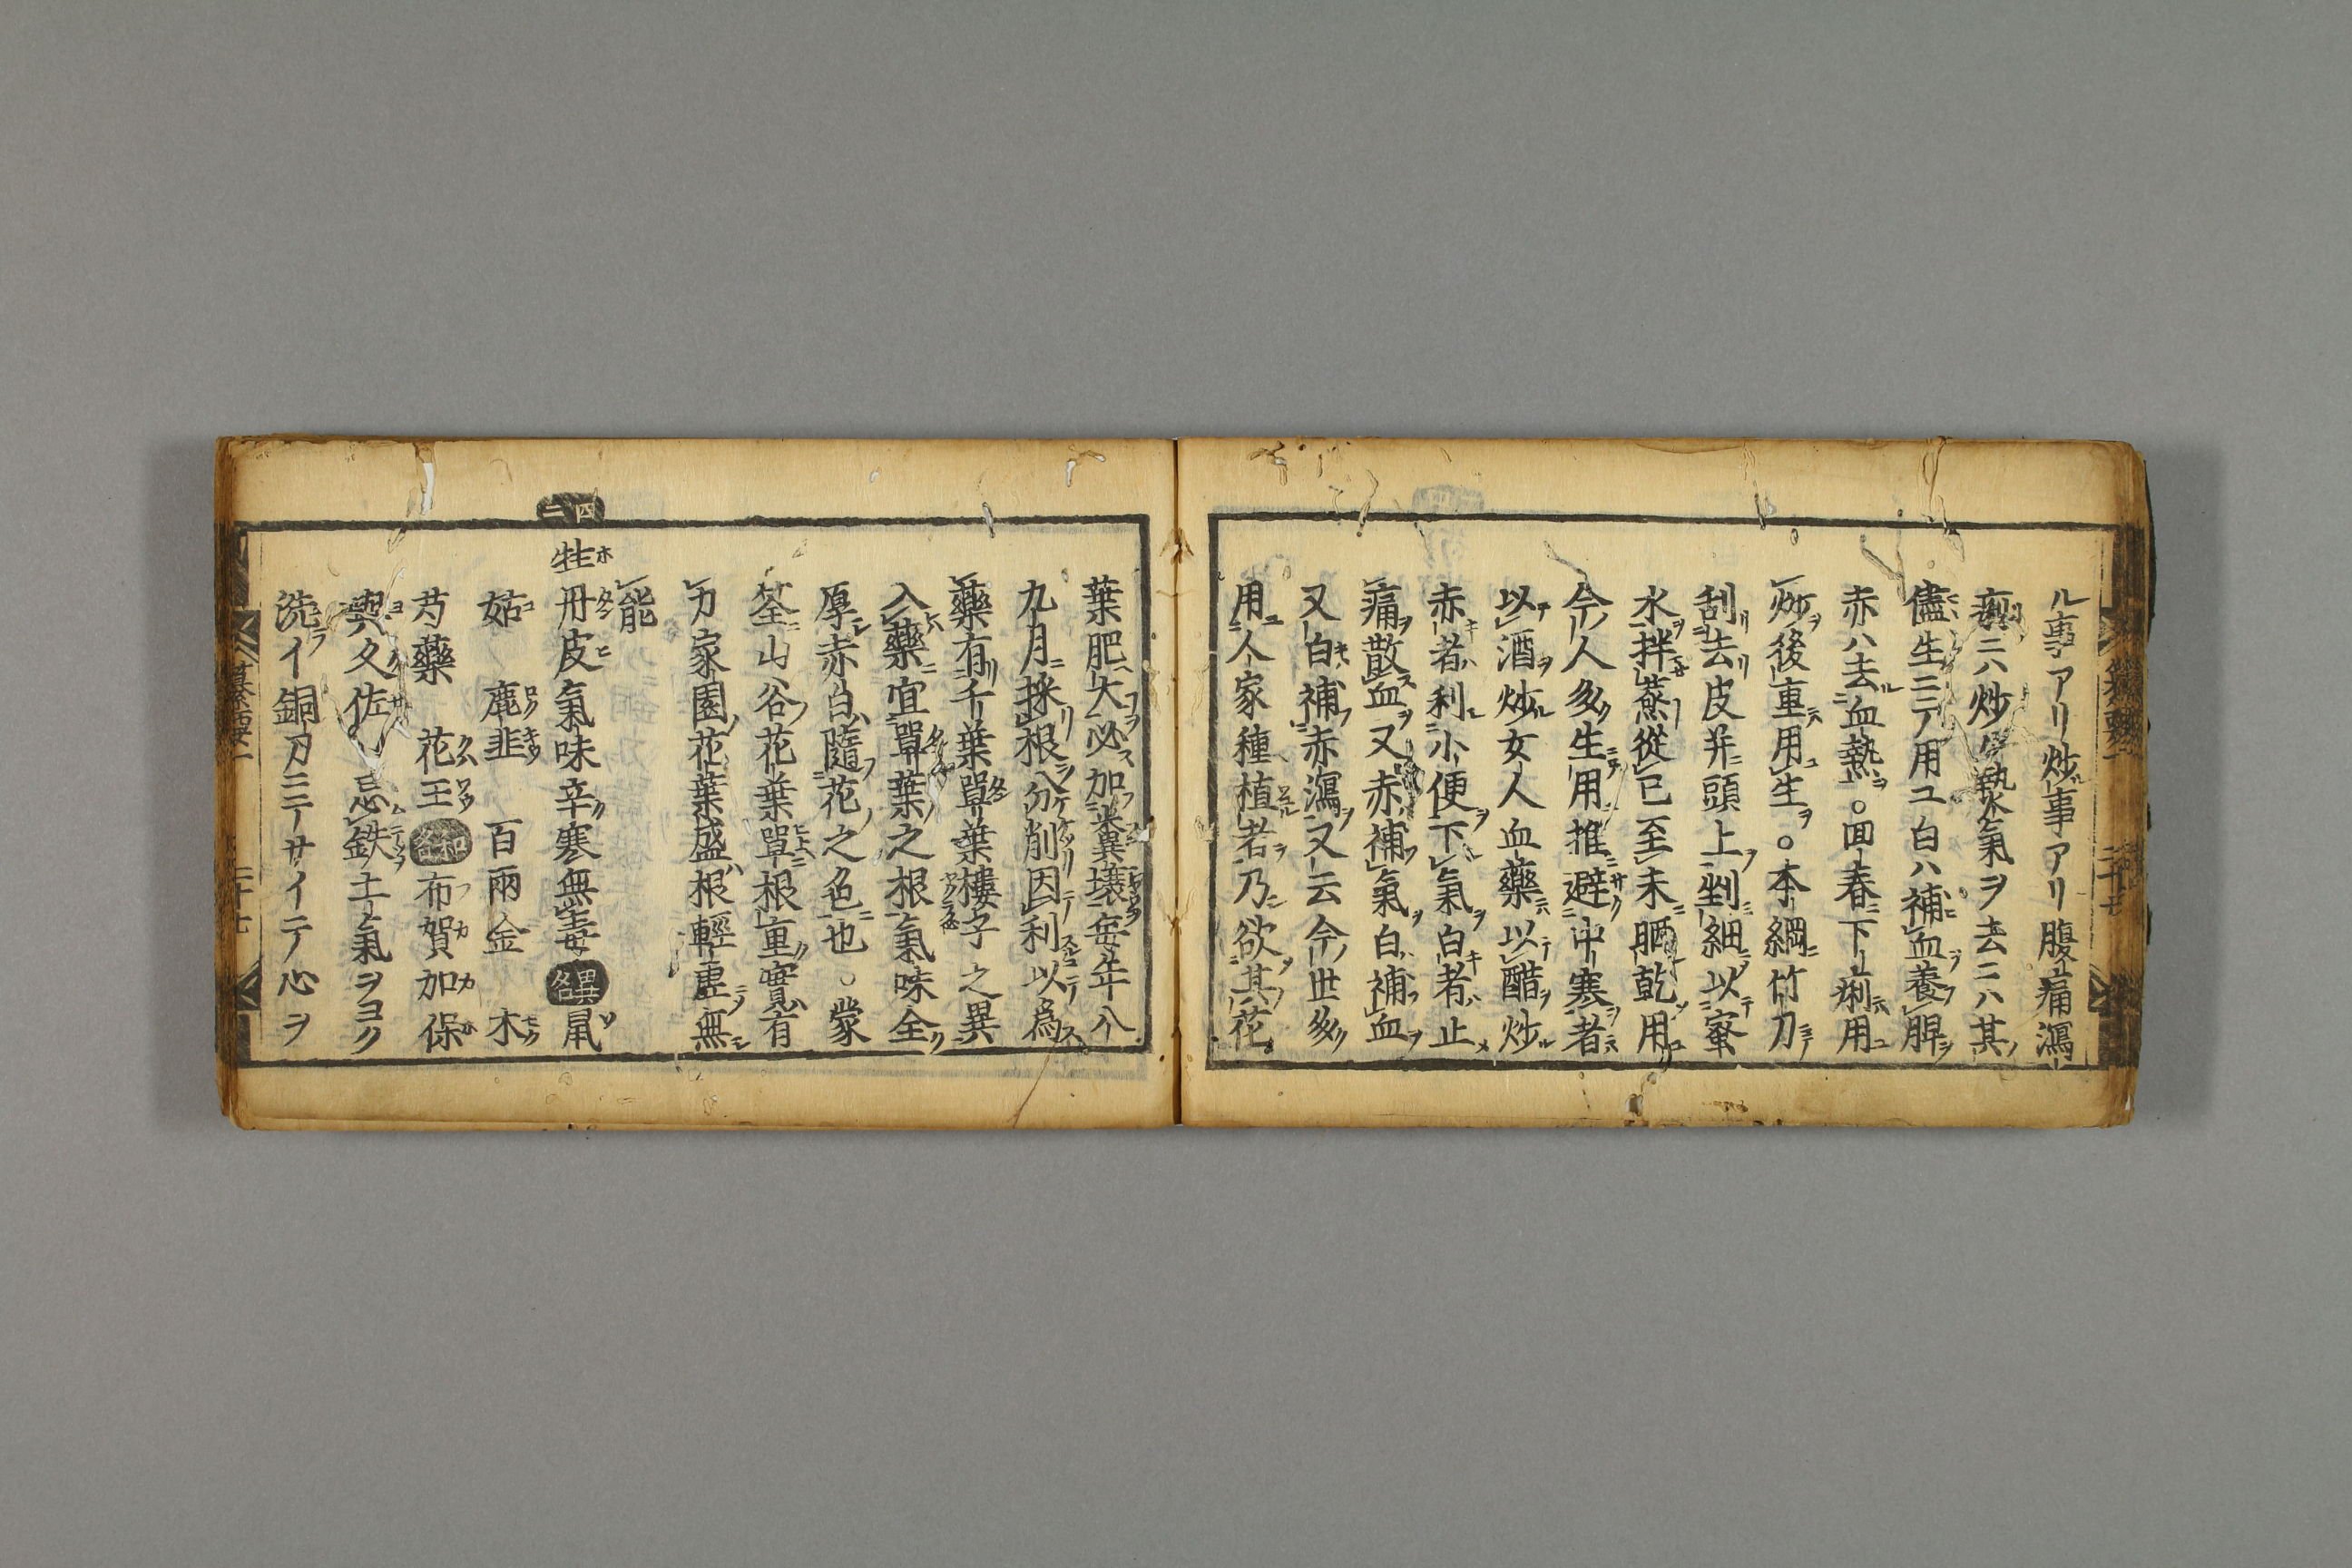 ル事アリ炒事アリ腹痛瀉
痢ニハ炒寒氣ヲ去ニハ其
儘生ニテ用ユ白ハ補血養脾
赤ハ去血熱。回春下痢用
炒後重用生。本綱竹刀
刮去皮并頭上剉細以蜜
水拌蒸從巳至未晒乾用
今人多生用推避中寒者
以酒炒女人血藥以醋炒
赤者利小便下氣白者止
痛散血又赤補氣白補血
又白補赤瀉又云今世多
用人家種植者乃欲其花
葉肥大必加糞壤每年八
九月採根分削因利以為
藥有千葉單葉樓子之異
入藥宜單葉之根氣味全
厚赤白隨花之色也。蒙
筌山谷花葉單根重實有
力家園花葉盛根輕虛無
能
四二
牡丹皮氣味辛寒無毒異名鼠
姑 鹿韭 百兩金 木
芍藥 花王 和名布賀加保
與久佐 忌鉄土氣ヲヨク
洗イ銅刀ニテサイテ心ヲ